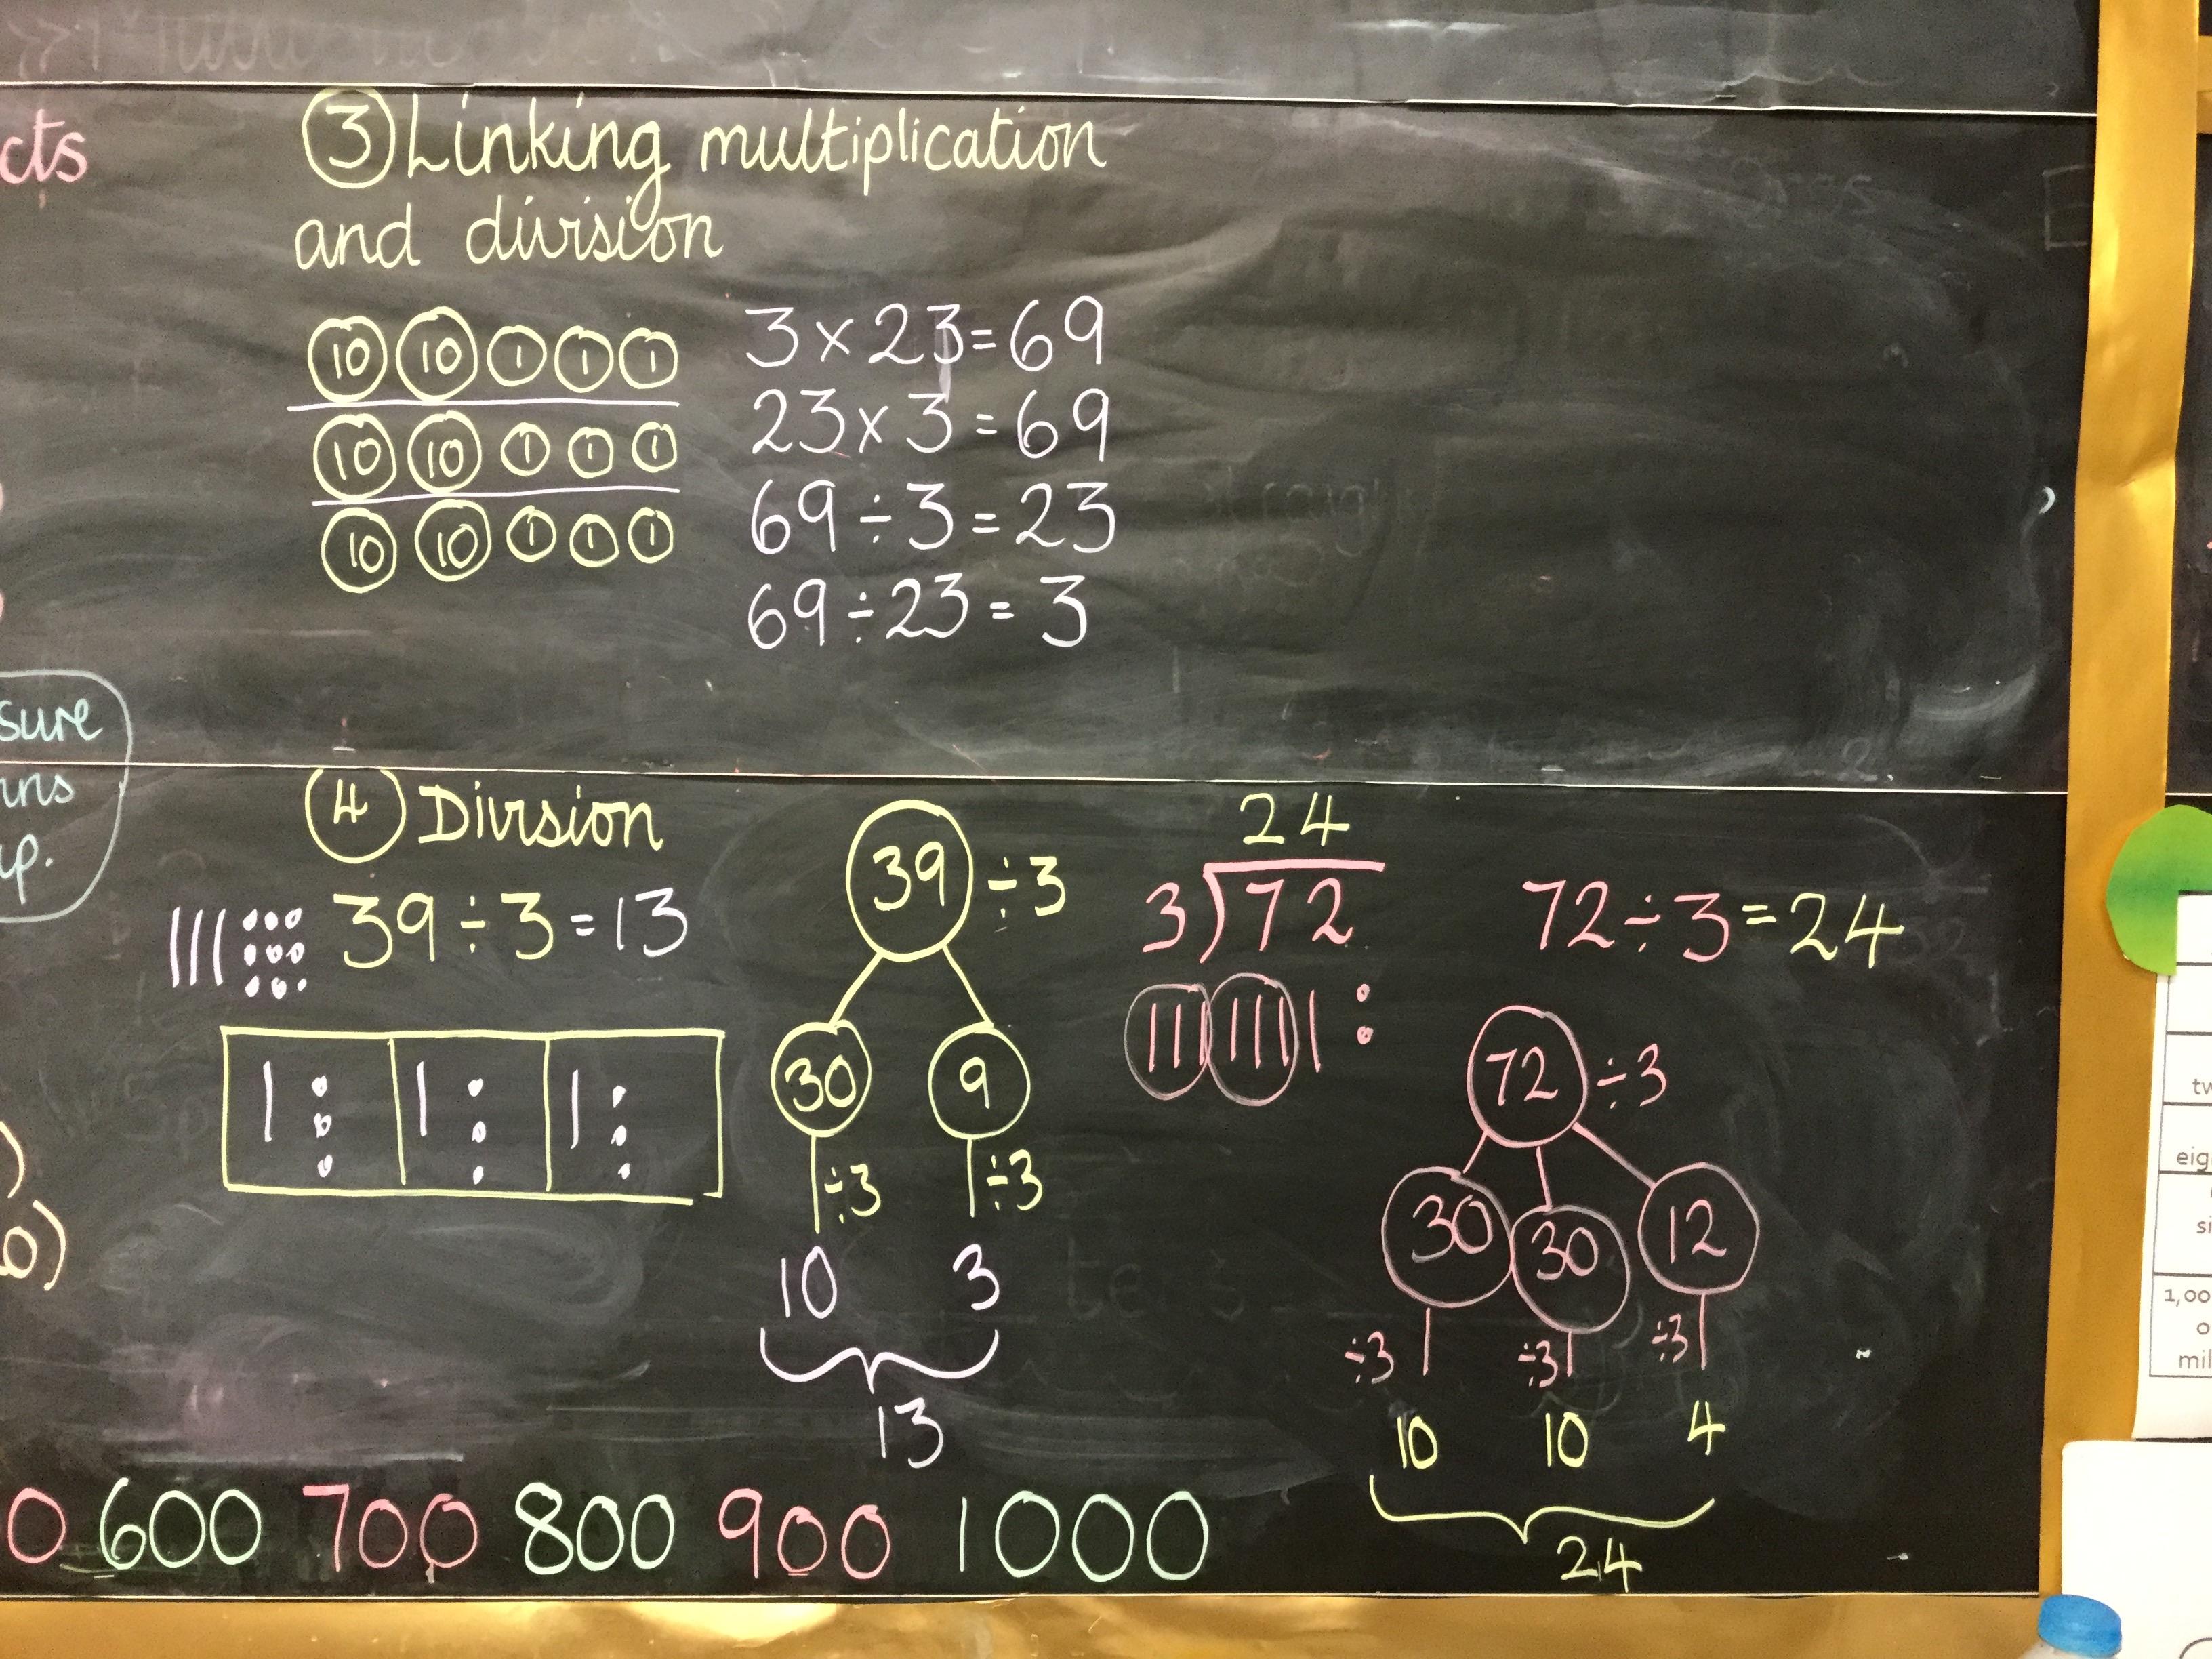 cts
③ Linking multiplication
and division
10 10 1 1 1
10 10 1 1 1
10 10 1 1 1
3 × 23 = 69
23 × 3 = 69
69 ÷ 3 = 23
69 ÷ 23 = 3
sure
rns
up.
)
0)
④ Division
39 ÷ 3 = 13
39 ÷3
30 9
÷3 ÷3
10 3
13
24
3)72
72 ÷ 3 = 24
72 ÷3
30 30 12
÷3 ÷3 ÷3
10 10 4
24
0 600 700 800 900 1000
tw
eig
si
1,00
o
mil